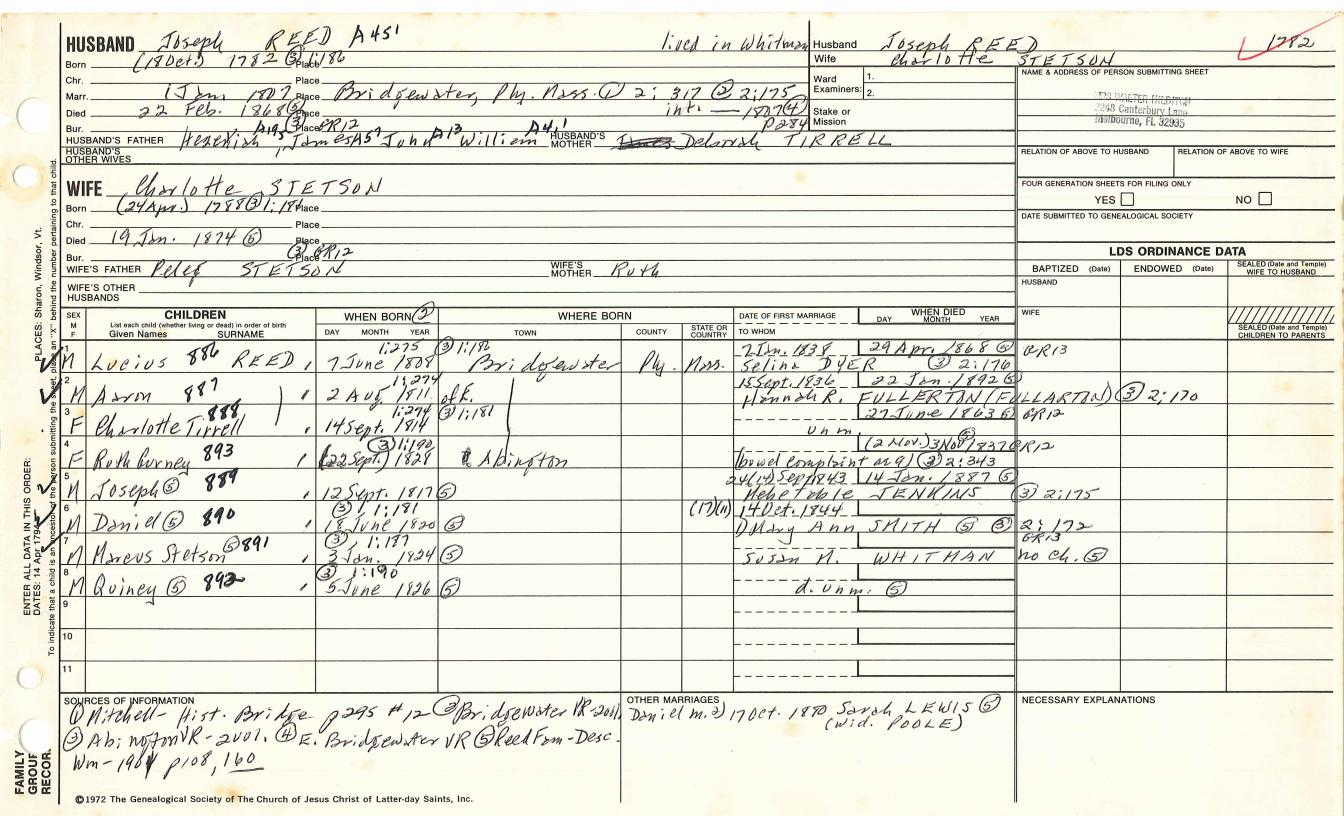 HUSBAND Joseph REED A451 lived in Whitman
Born (18 Oct.) 1782 ③ 1:186 Place
Chr. Place
Marr. 1 Jan. 1807 Place Bridgewater, Ply. Mass. ① 2:317 ② 2:175
Died 22 Feb. 1868 ⑤ Place int. — 1807 ④
Bur. ③ Place GR12 p284
HUSBAND'S FATHER Hezekiah A195, James A57 John A13 William A4,1 HUSBAND'S MOTHER Deborah TIRRELL
HUSBAND'S OTHER WIVES
Husband Joseph REED
Wife Charlotte STETSON
1782
Ward Examiners: 1.
2.
Stake or Mission
NAME & ADDRESS OF PERSON SUBMITTING SHEET
2248 Canterbury Lane
Melbourne, FL 32935
RELATION OF ABOVE TO HUSBAND RELATION OF ABOVE TO WIFE
FOUR GENERATION SHEETS FOR FILING ONLY
YES NO
DATE SUBMITTED TO GENEALOGICAL SOCIETY
WIFE Charlotte STETSON
Born (24 Apr.) 1788 ③ 1:186 Place
Chr. Place
Died 19 Jan. 1874 ⑤ Place
Bur. ③ Place GR12
WIFE'S FATHER Peleg STETSON WIFE'S MOTHER Ruth
WIFE'S OTHER HUSBANDS
LDS ORDINANCE DATA
BAPTIZED (Date) ENDOWED (Date) SEALED (Date and Temple) WIFE TO HUSBAND
HUSBAND
WIFE
SEALED (Date and Temple) CHILDREN TO PARENTS
SEX M F CHILDREN List each child (whether living or dead) in order of birth Given Names SURNAME
WHEN BORN ② DAY MONTH YEAR
WHERE BORN TOWN COUNTY STATE OR COUNTRY
DATE OF FIRST MARRIAGE TO WHOM
WHEN DIED DAY MONTH YEAR
1 M Lucius 886 REED, 1:275 7 June 1808 ③ 1:186 Bridgewater Ply. Mass. 7 Jan. 1838 Selina DYER 29 Apr. 1868 ⑤ ③ 2:176 GR13
2 M Aaron 887 , 1:274 2 Aug 1811 of E. 15 Sept. 1836 Hannah R. FULLERTON (FULLARTON) 22 Jan. 1892 ⑤ ③ 2:170
3 F Charlotte Tirrell 888 , 1:274 14 Sept. 1814 ③ 1:181 unm 27 June 1863 ⑤ GR12
4 F Ruth Gurney 893 , ③ 1:190 (22 Sept.) 1828 Abington (2 Nov.) 3 Nov 1837 ⑤ GR12 (bowel complaint ae 9) ③ 2:343
5 M Joseph ⑤ 889 12 Sept. 1817 ⑤ 24 (14) Sept 1843 Mehetable JENKINS 14 Jan. 1887 ⑤ ③ 2:175
6 M Daniel ⑤ 890 , ③ 1:181 18 June 1820 ⑤ (17)(11) 14 Oct. 1844 1) Mary Ann SMITH ⑤ ③ 2:172
7 M Marcus Stetson ⑤ 891 , ③ 1:187 3 Jan. 1824 ⑤ Susan M. WHITMAN GR13 no ch. ⑤
8 M Quincy ⑤ 892 , ③ 1:190 5 June 1826 ⑤ d. unm. ⑤
9
10
11
SOURCES OF INFORMATION
① Mitchell - Hist. Bridge p295 #12 ② Bridgewater VR - 2vol.
③ Abington VR - 2vol. ④ E. Bridgewater VR ⑤ Reed Fam - Desc.
Wm - 1901 p108, 160
OTHER MARRIAGES
Daniel m. 2) 17 Oct. 1870 Sarah LEWIS ⑤
(wid. POOLE)
NECESSARY EXPLANATIONS
©1972 The Genealogical Society of The Church of Jesus Christ of Latter-day Saints, Inc.
FAMILY GROUP RECOR
ENTER ALL DATA IN THIS ORDER:
DATES: 14 Apr 1794 PLACES: Sharon, Windsor, Vt.
To indicate that a child is an ancestor of the person submitting the sheet, place an "X" behind the number pertaining to that child.